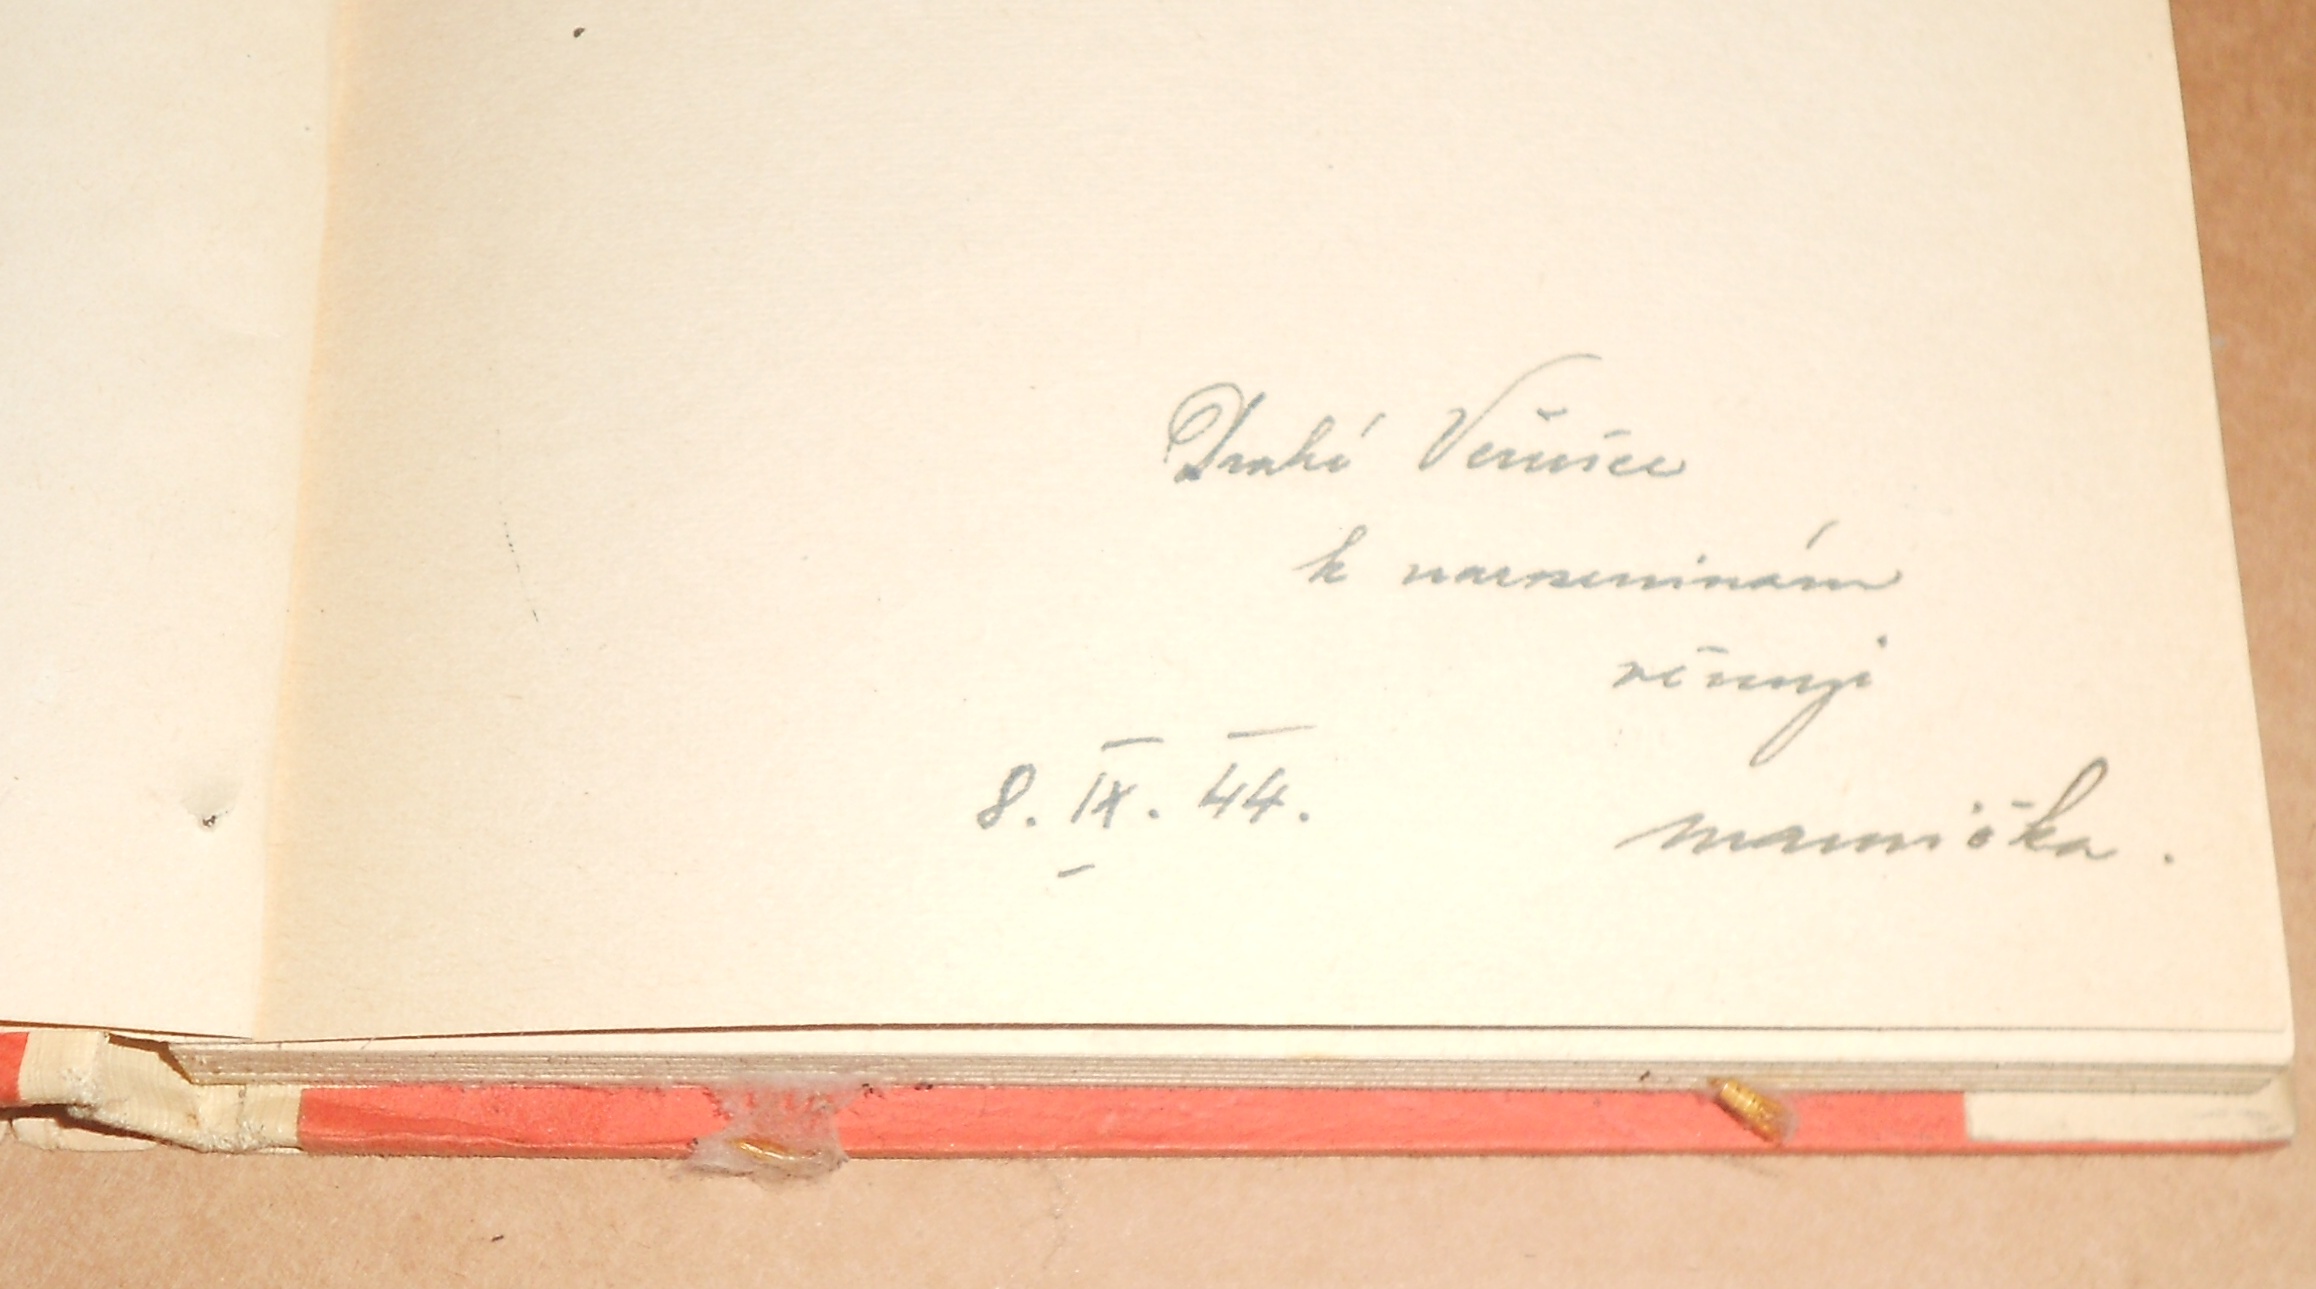 Drahé Věrušce
k narozeninám
věnuji
8. IX. 44.
mamička.